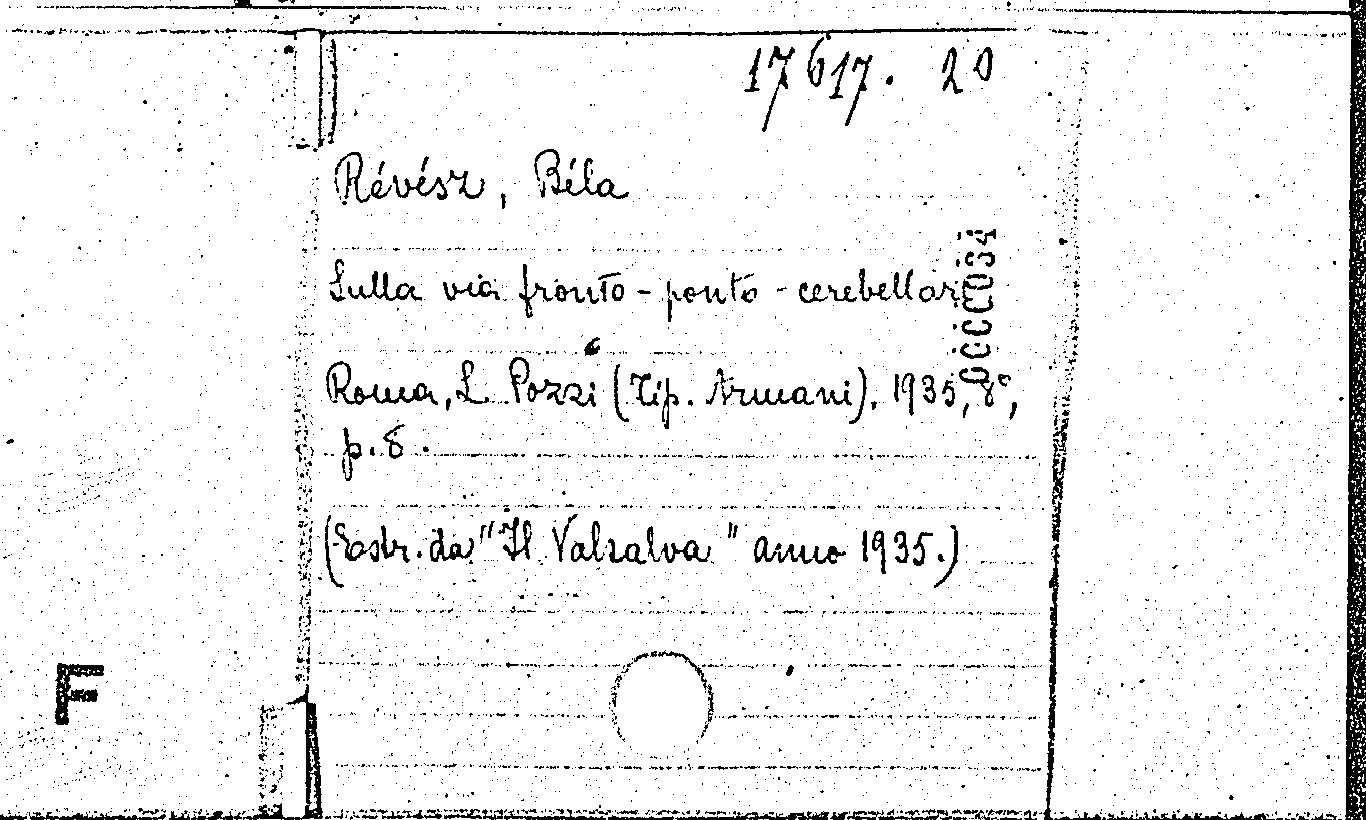 17617. 20
Révész, Béla
Sulla via fronto-ponto-cerebellare
Roma, L. Pozzi (Tip. Armani), 1935, 8°,
p. 8.
(Estr. da "Il Valsalva" anno 1935.)
F